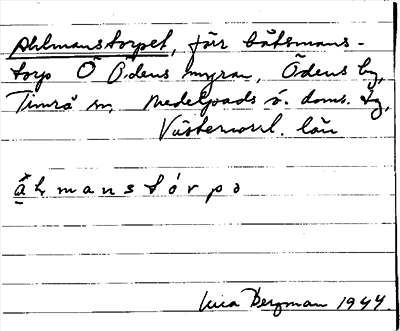 Ahlmanstorpet, förr båtsmans-
torp Ö Ödens myran, Ödens by,
Timrå sn, Medelpads ö. doms. tg,
Västernorrl. län
ålmanstórpə
Bergman 1944.